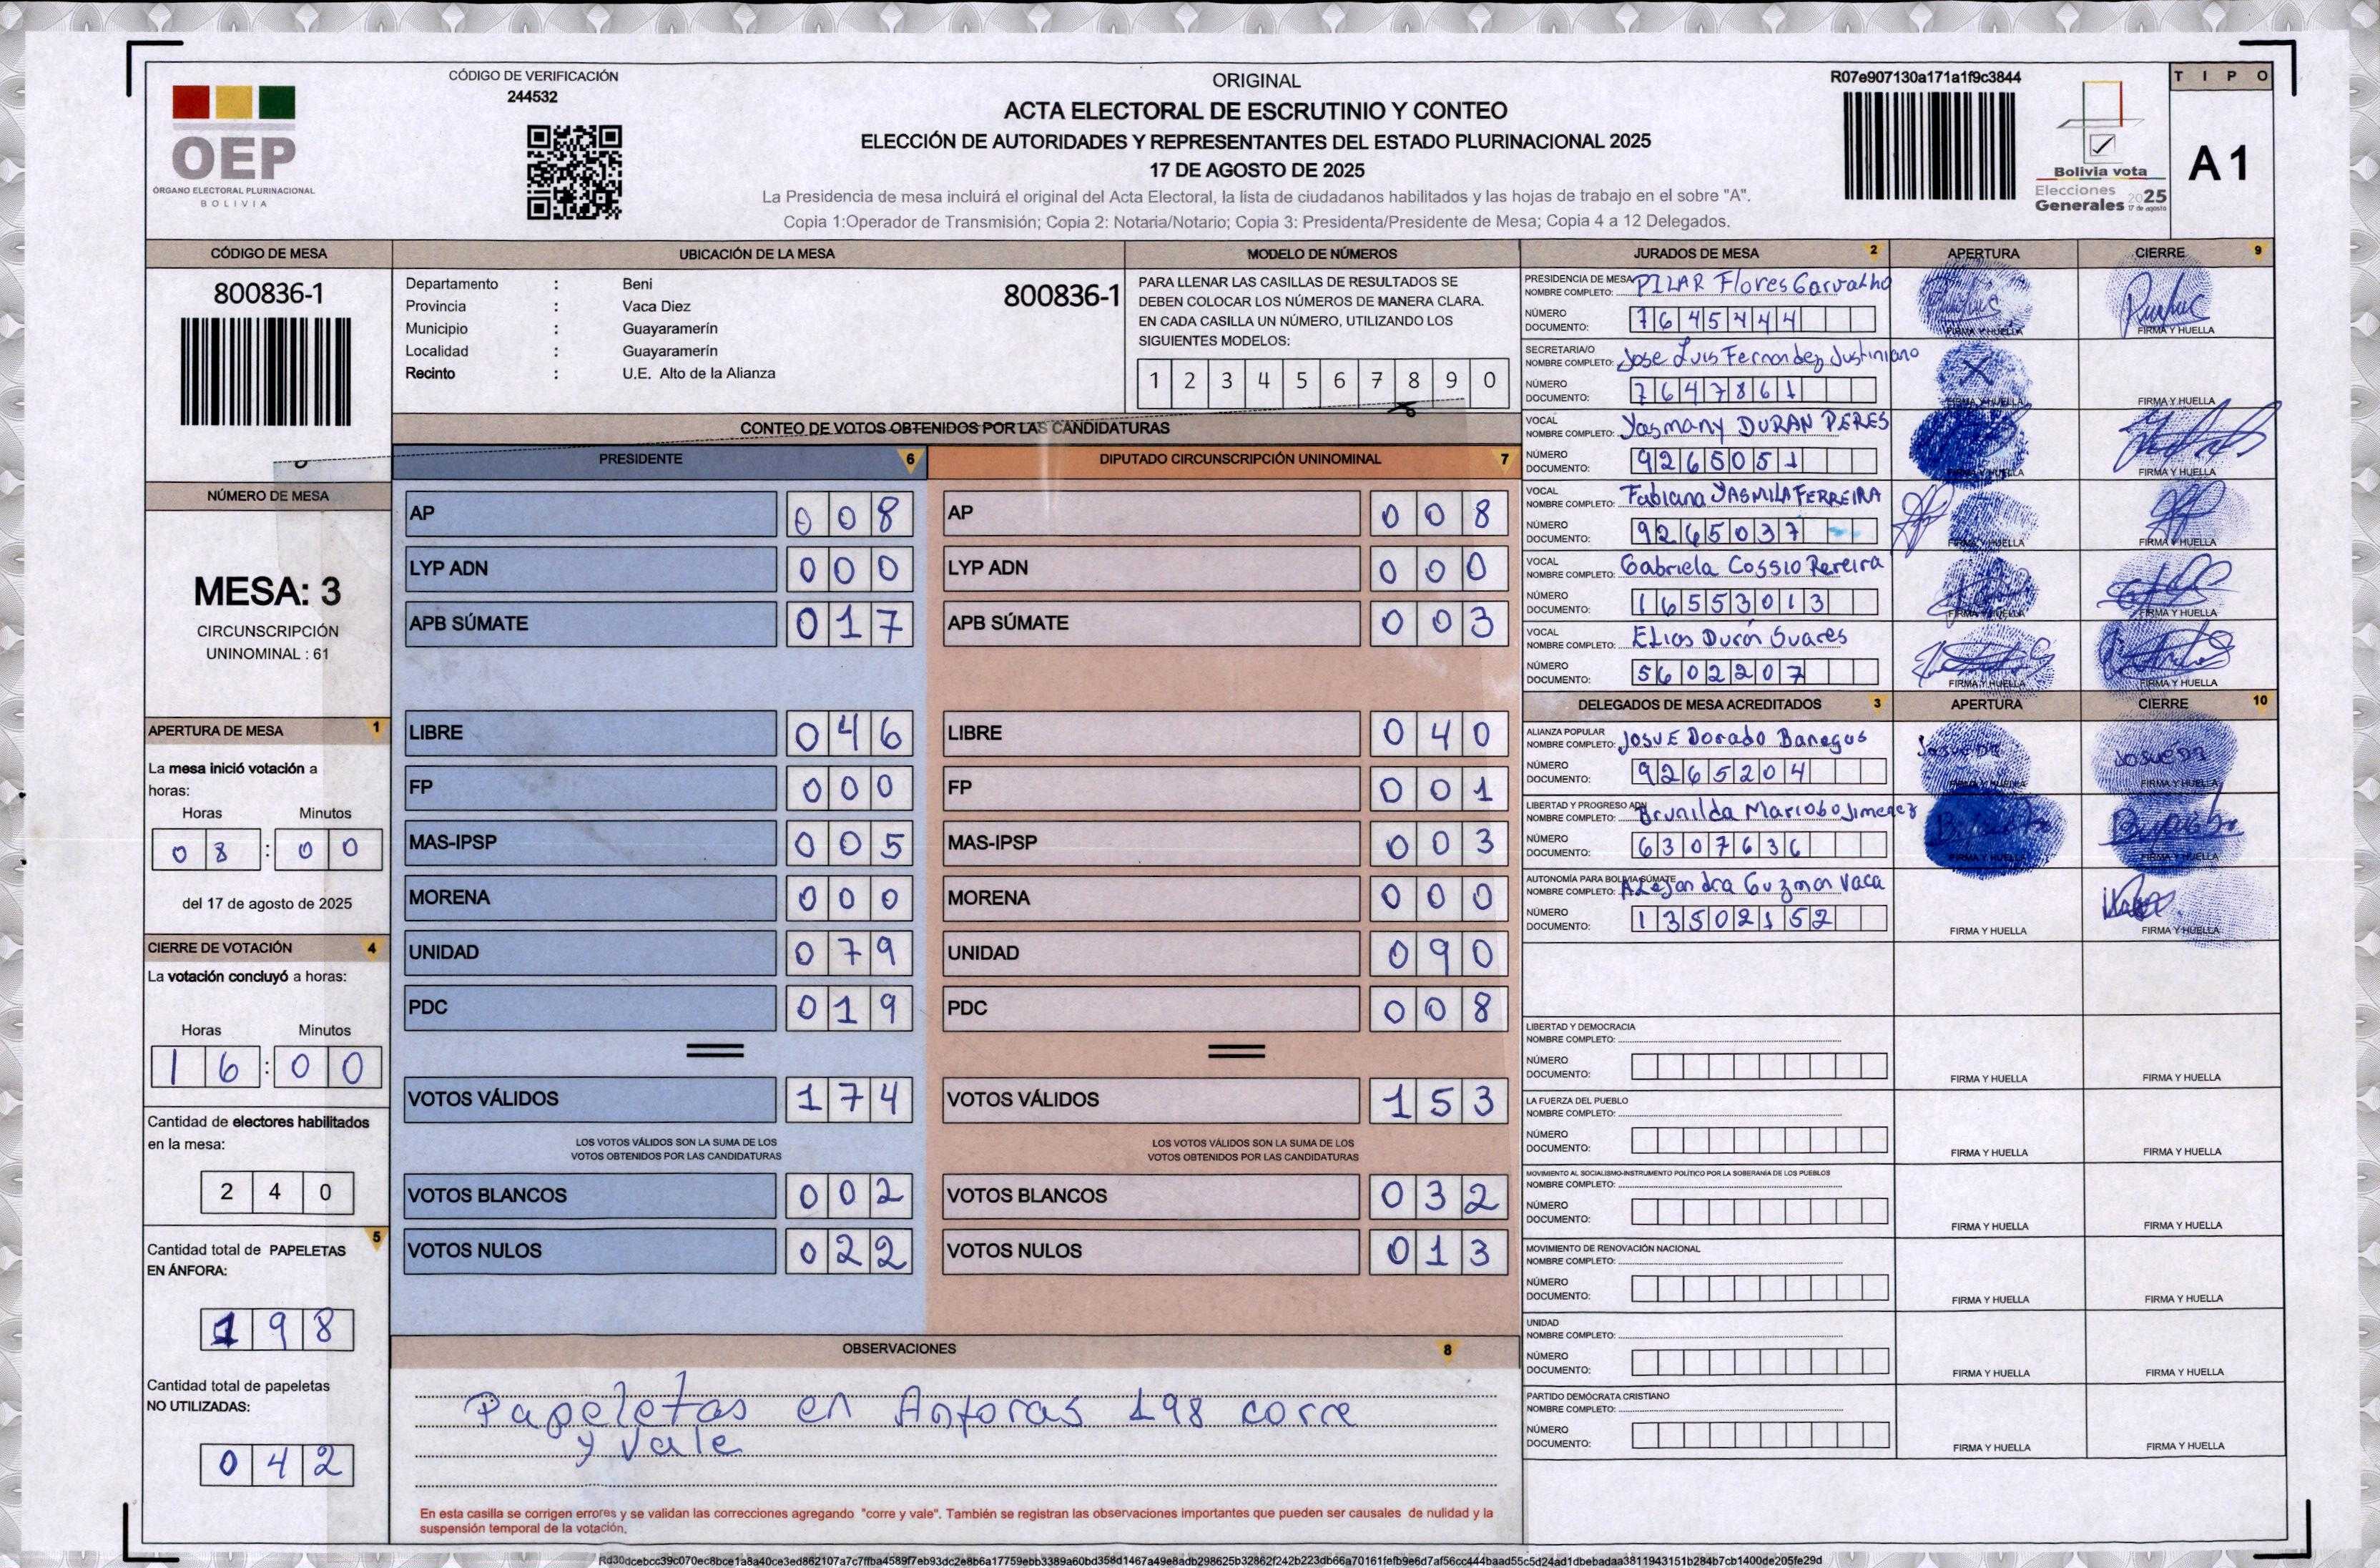 CÓDIGO DE VERIFICACIÓN
244532
OEP
ÓRGANO ELECTORAL PLURINACIONAL
BOLIVIA
ORIGINAL
ACTA ELECTORAL DE ESCRUTINIO Y CONTEO
ELECCIÓN DE AUTORIDADES Y REPRESENTANTES DEL ESTADO PLURINACIONAL 2025
17 DE AGOSTO DE 2025
La Presidencia de mesa incluirá el original del Acta Electoral, la lista de ciudadanos habilitados y las hojas de trabajo en el sobre "A".
Copia 1:Operador de Transmisión; Copia 2: Notaria/Notario; Copia 3: Presidenta/Presidente de Mesa; Copia 4 a 12 Delegados.
R07e907130a171a1f9c3844
Bolivia vota
Elecciones
Generales 2025
17 de agosto
TIPO
A1
CÓDIGO DE MESA
800836-1
UBICACIÓN DE LA MESA
Departamento : Beni
Provincia : Vaca Diez
Municipio : Guayaramerín
Localidad : Guayaramerín
Recinto : U.E. Alto de la Alianza
800836-1
MODELO DE NÚMEROS
PARA LLENAR LAS CASILLAS DE RESULTADOS SE
DEBEN COLOCAR LOS NÚMEROS DE MANERA CLARA.
EN CADA CASILLA UN NÚMERO, UTILIZANDO LOS
SIGUIENTES MODELOS:
1 2 3 4 5 6 7 8 9 0
NÚMERO DE MESA
MESA: 3
CIRCUNSCRIPCIÓN
UNINOMINAL : 61
APERTURA DE MESA 1
La mesa inició votación a
horas:
Horas Minutos
0 8 : 0 0
del 17 de agosto de 2025
CIERRE DE VOTACIÓN 4
La votación concluyó a horas:
Horas Minutos
1 6 : 0 0
Cantidad de electores habilitados
en la mesa:
2 4 0
5
Cantidad total de PAPELETAS
EN ÁNFORA:
1 9 8
Cantidad total de papeletas
NO UTILIZADAS:
0 4 2
CONTEO DE VOTOS OBTENIDOS POR LAS CANDIDATURAS
PRESIDENTE 6
AP 0 0 8
LYP ADN 0 0 0
APB SÚMATE 0 1 7
LIBRE 0 4 6
FP 0 0 0
MAS-IPSP 0 0 5
MORENA 0 0 0
UNIDAD 0 7 9
PDC 0 1 9
VOTOS VÁLIDOS 1 7 4
LOS VOTOS VÁLIDOS SON LA SUMA DE LOS
VOTOS OBTENIDOS POR LAS CANDIDATURAS
VOTOS BLANCOS 0 0 2
VOTOS NULOS 0 2 2
DIPUTADO CIRCUNSCRIPCIÓN UNINOMINAL 7
AP 0 0 8
LYP ADN 0 0 0
APB SÚMATE 0 0 3
LIBRE 0 4 0
FP 0 0 1
MAS-IPSP 0 0 3
MORENA 0 0 0
UNIDAD 0 9 0
PDC 0 0 8
VOTOS VÁLIDOS 1 5 3
LOS VOTOS VÁLIDOS SON LA SUMA DE LOS
VOTOS OBTENIDOS POR LAS CANDIDATURAS
VOTOS BLANCOS 0 3 2
VOTOS NULOS 0 1 3
OBSERVACIONES 8
Papeletas en Anforas 198 corre
y vale
En esta casilla se corrigen errores y se validan las correcciones agregando "corre y vale". También se registran las observaciones importantes que pueden ser causales de nulidad y la
suspensión temporal de la votación.
JURADOS DE MESA 2 APERTURA CIERRE 9
PRESIDENCIA DE MESA
NOMBRE COMPLETO: PILAR Flores Carvalho
NÚMERO
DOCUMENTO: 7645444
FIRMA Y HUELLA FIRMA Y HUELLA
SECRETARIA/O
NOMBRE COMPLETO: Jose Luis Fernandez Justiniano
NÚMERO
DOCUMENTO: 7647861
FIRMA Y HUELLA FIRMA Y HUELLA
VOCAL
NOMBRE COMPLETO: Yasmany DURAN PERES
NÚMERO
DOCUMENTO: 9265051
FIRMA Y HUELLA FIRMA Y HUELLA
VOCAL
NOMBRE COMPLETO: Fabiana YASMILA FERREIRA
NÚMERO
DOCUMENTO: 9265037
FIRMA Y HUELLA FIRMA Y HUELLA
VOCAL
NOMBRE COMPLETO: Gabriela Cossio Pereira
NÚMERO
DOCUMENTO: 16553013
FIRMA Y HUELLA FIRMA Y HUELLA
VOCAL
NOMBRE COMPLETO: Elias Durán Suares
NÚMERO
DOCUMENTO: 5602207
FIRMA Y HUELLA FIRMA Y HUELLA
DELEGADOS DE MESA ACREDITADOS 3 APERTURA CIERRE 10
ALIANZA POPULAR
NOMBRE COMPLETO: JosuE Dorado Banegas
NÚMERO
DOCUMENTO: 9265204
FIRMA Y HUELLA FIRMA Y HUELLA
LIBERTAD Y PROGRESO ADN
NOMBRE COMPLETO: Brunilda Mariobo Jimenez
NÚMERO
DOCUMENTO: 6307636
FIRMA Y HUELLA FIRMA Y HUELLA
AUTONOMÍA PARA BOLIVIA SÚMATE
NOMBRE COMPLETO: Alejandra Guzman Vaca
NÚMERO
DOCUMENTO: 13502152
FIRMA Y HUELLA FIRMA Y HUELLA
LIBERTAD Y DEMOCRACIA
NOMBRE COMPLETO:
NÚMERO
DOCUMENTO:
FIRMA Y HUELLA FIRMA Y HUELLA
LA FUERZA DEL PUEBLO
NOMBRE COMPLETO:
NÚMERO
DOCUMENTO:
FIRMA Y HUELLA FIRMA Y HUELLA
MOVIMIENTO AL SOCIALISMO-INSTRUMENTO POLÍTICO POR LA SOBERANÍA DE LOS PUEBLOS
NOMBRE COMPLETO:
NÚMERO
DOCUMENTO:
FIRMA Y HUELLA FIRMA Y HUELLA
MOVIMIENTO DE RENOVACIÓN NACIONAL
NOMBRE COMPLETO:
NÚMERO
DOCUMENTO:
FIRMA Y HUELLA FIRMA Y HUELLA
UNIDAD
NOMBRE COMPLETO:
NÚMERO
DOCUMENTO:
FIRMA Y HUELLA FIRMA Y HUELLA
PARTIDO DEMÓCRATA CRISTIANO
NOMBRE COMPLETO:
NÚMERO
DOCUMENTO:
FIRMA Y HUELLA FIRMA Y HUELLA